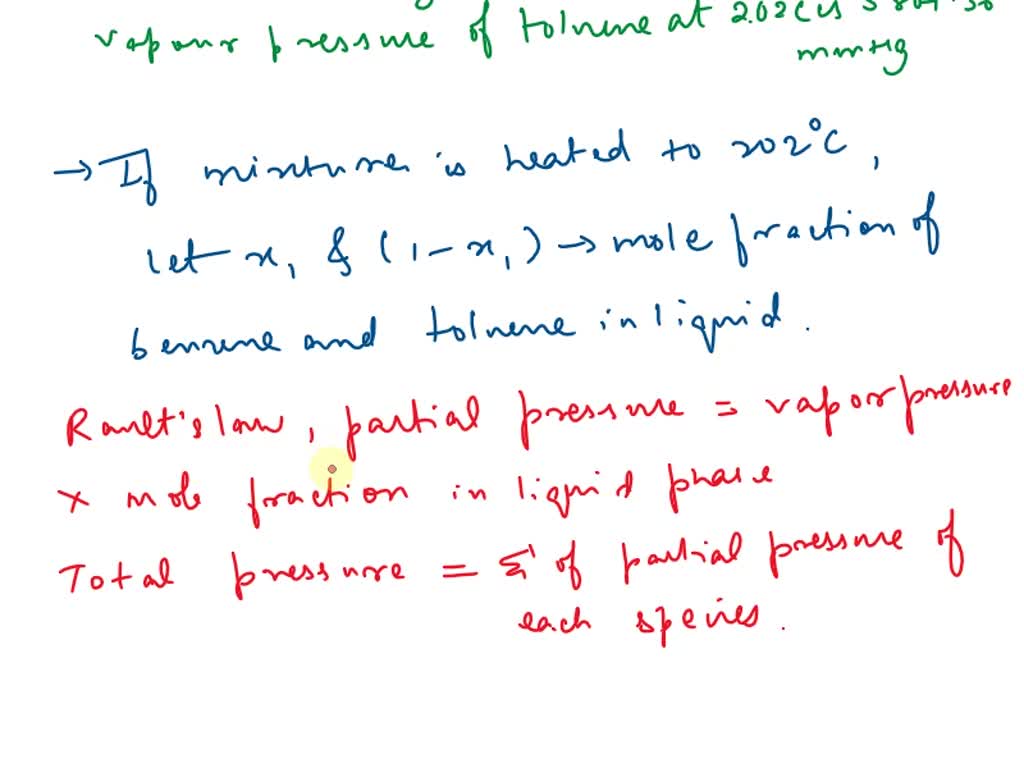 vapour pressure of toluene at 202C is
mmHg
→ If mixture is heated to 202°C,
let x₁ & (1-x₁) → mole fraction of
benzene and toluene in liquid.
Rault's law, partial pressure = vapor pressure
× mole fraction in liquid phase
Total pressure = Σ of partial pressure of
each species.